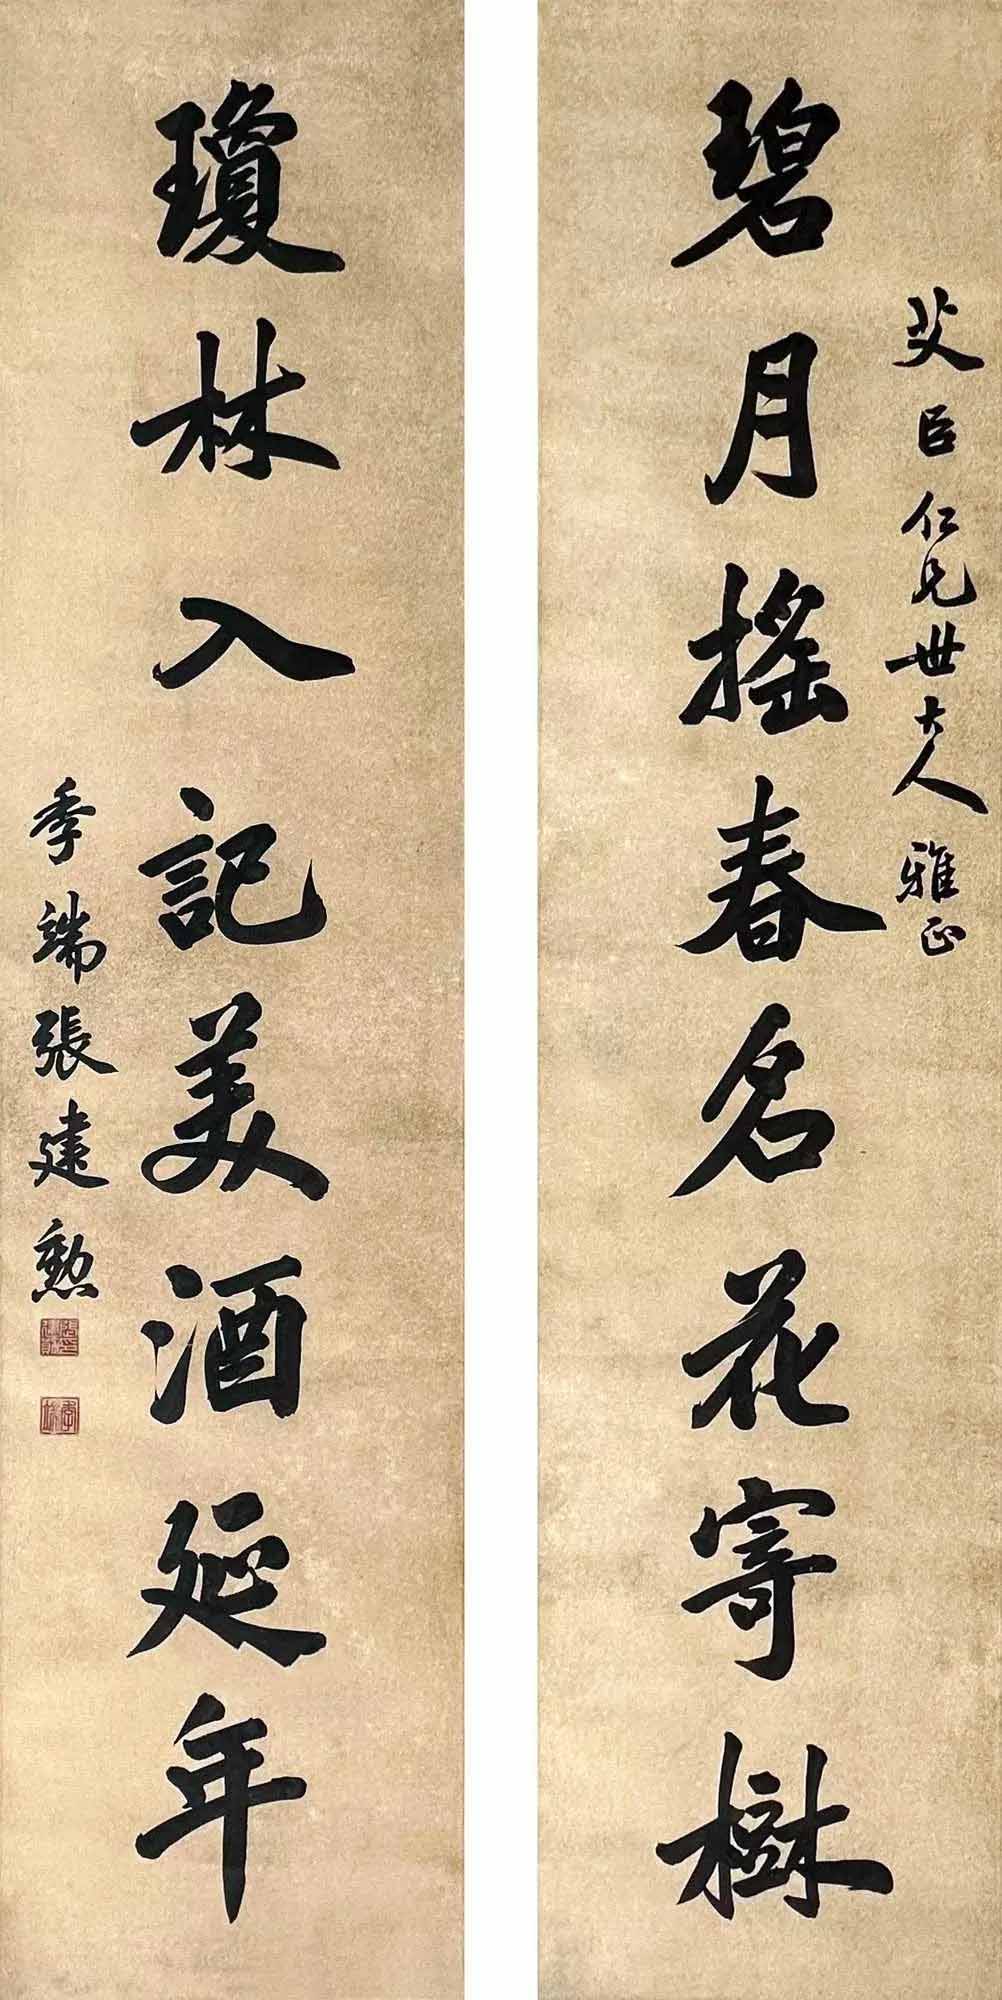 碧月搖春名花寄樹
艾臣仁兄世大人雅正
瓊林入記美酒延年
季端張建勲